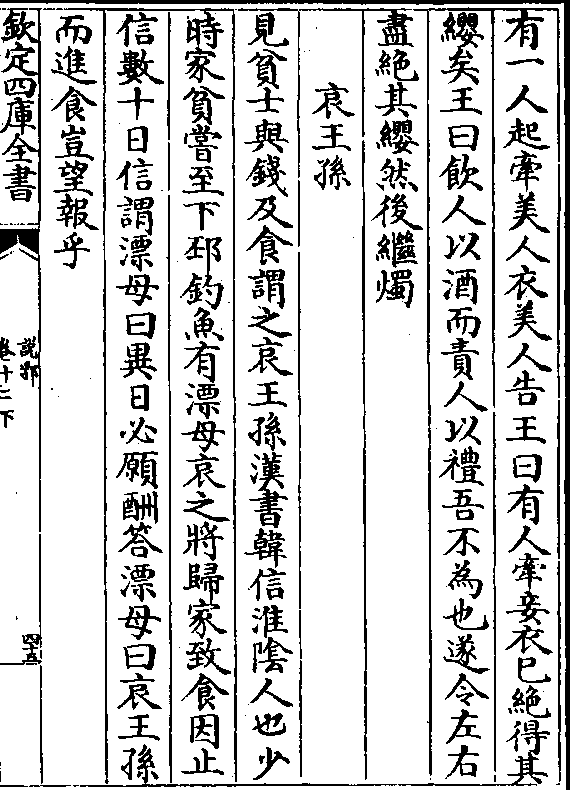 有一人起牽美人衣美人告王曰有人牽妾衣已絶得其
纓矣王曰飲人以酒而責人以禮吾不為也遂令左右
盡絶其纓然後繼燭
哀王孫
見貧士與錢及食謂之哀王孫漢書韓信淮隂人也少
時家貧嘗至下邳釣魚有漂母哀之將歸家致食因止
信數十日信謂漂母曰異日必願酬答漂母曰哀王孫
而進食豈望報乎
欽定四庫全書
說郛
卷十二下
四十五